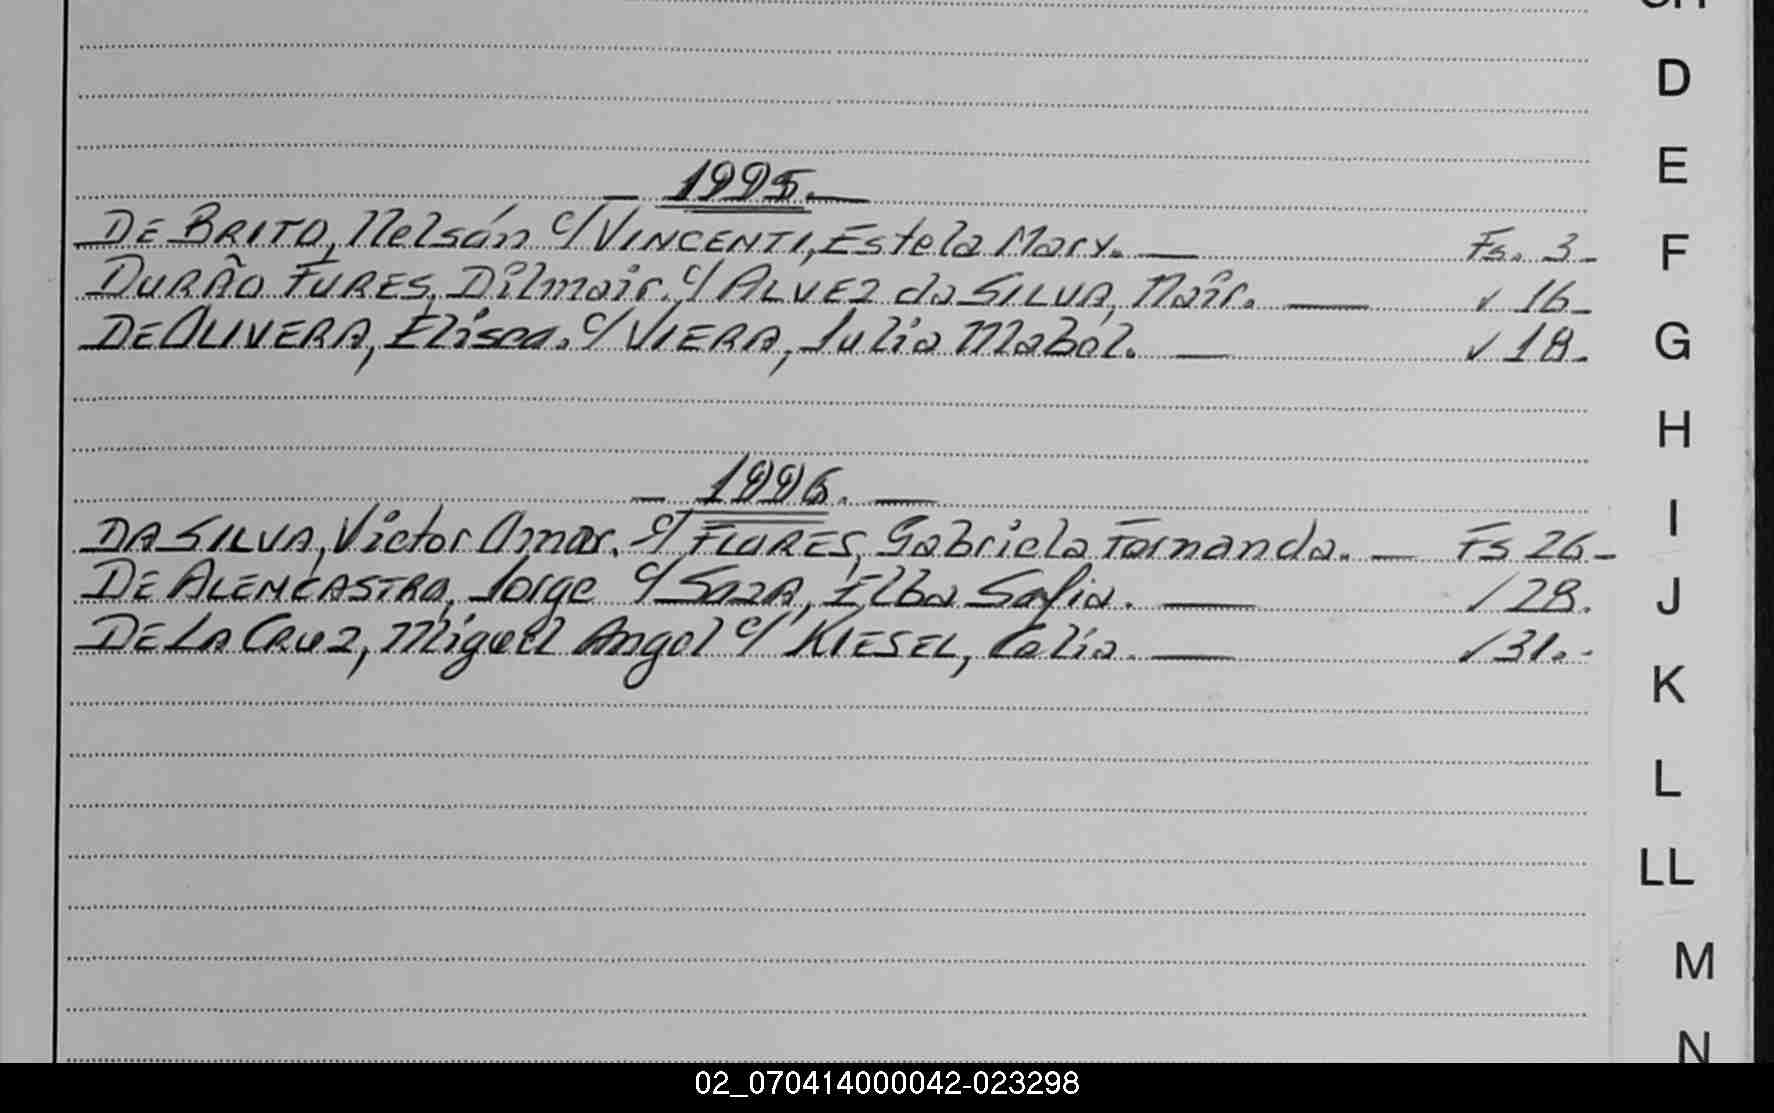 D
E
— 1995. —
DE BRITO, Nelsón c/ VINCENTI, Estela Mary. — Fs. 3_ F
DURÃO FURES, Dilmair. c/ ALVEZ da SILVA, Nair. — ✓ 16_
DE OLIVERA, Elisea. c/ VIERA, Julia Mabél. — ✓ 18. G
H
— 1996. —
I
DA SILVA, Victor Omar. c/ FLORES, Gabriela Fernanda. — Fs 26_
DE ALENCASTRO, Jorge c/ SOZA, Elba Sofia. — / 28. J
DE LA CRUZ, Miguel Angel c/ KIESEL, Celia. — / 31.
K
L
LL
M
N
02_070414000042-023298